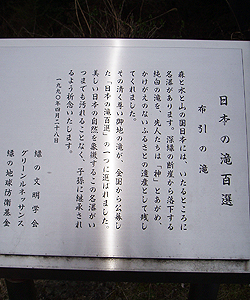 日本の滝百選
布引の滝
森と水と山の国日本には、いたるところに
名瀑があります。深緑の断崖から落下する
純白の滝を、先人たちは「神」とあがめ、
かけがえのないふるさとの遺産として残し
てくれました。
その清く尊い御地の滝が、全国から公募し
た「日本の滝百選」の一つに選ばれました。
美しい日本の自然を象徴するこの名瀑がい
つまでも汚れることなく、子孫に継承され
るよう祈念いたします。
一九九〇年四月二十八日
緑の文明学会
グリーンルネッサンス
緑の地球防衛基金